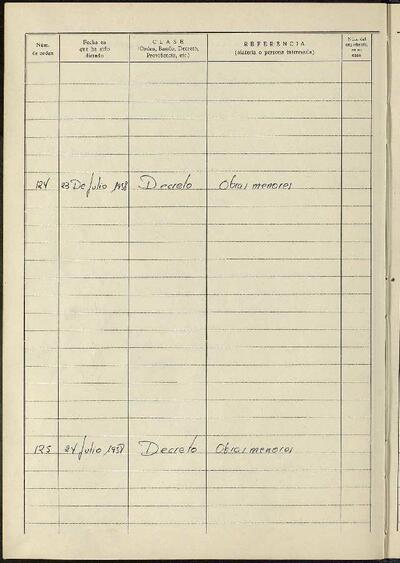 Núm. de orden | Fecha en que ha sido dictado | CLASE (Orden, Bando, Decreto, Providencia, etc.) | REFERENCIA (Materia o persona interesada) | Núm. del expediente, en su caso
124 | 23 De Julio, 1958 | Decreto | Obras menores
125 | 24 Julio, 1958 | Decreto | Obras menores